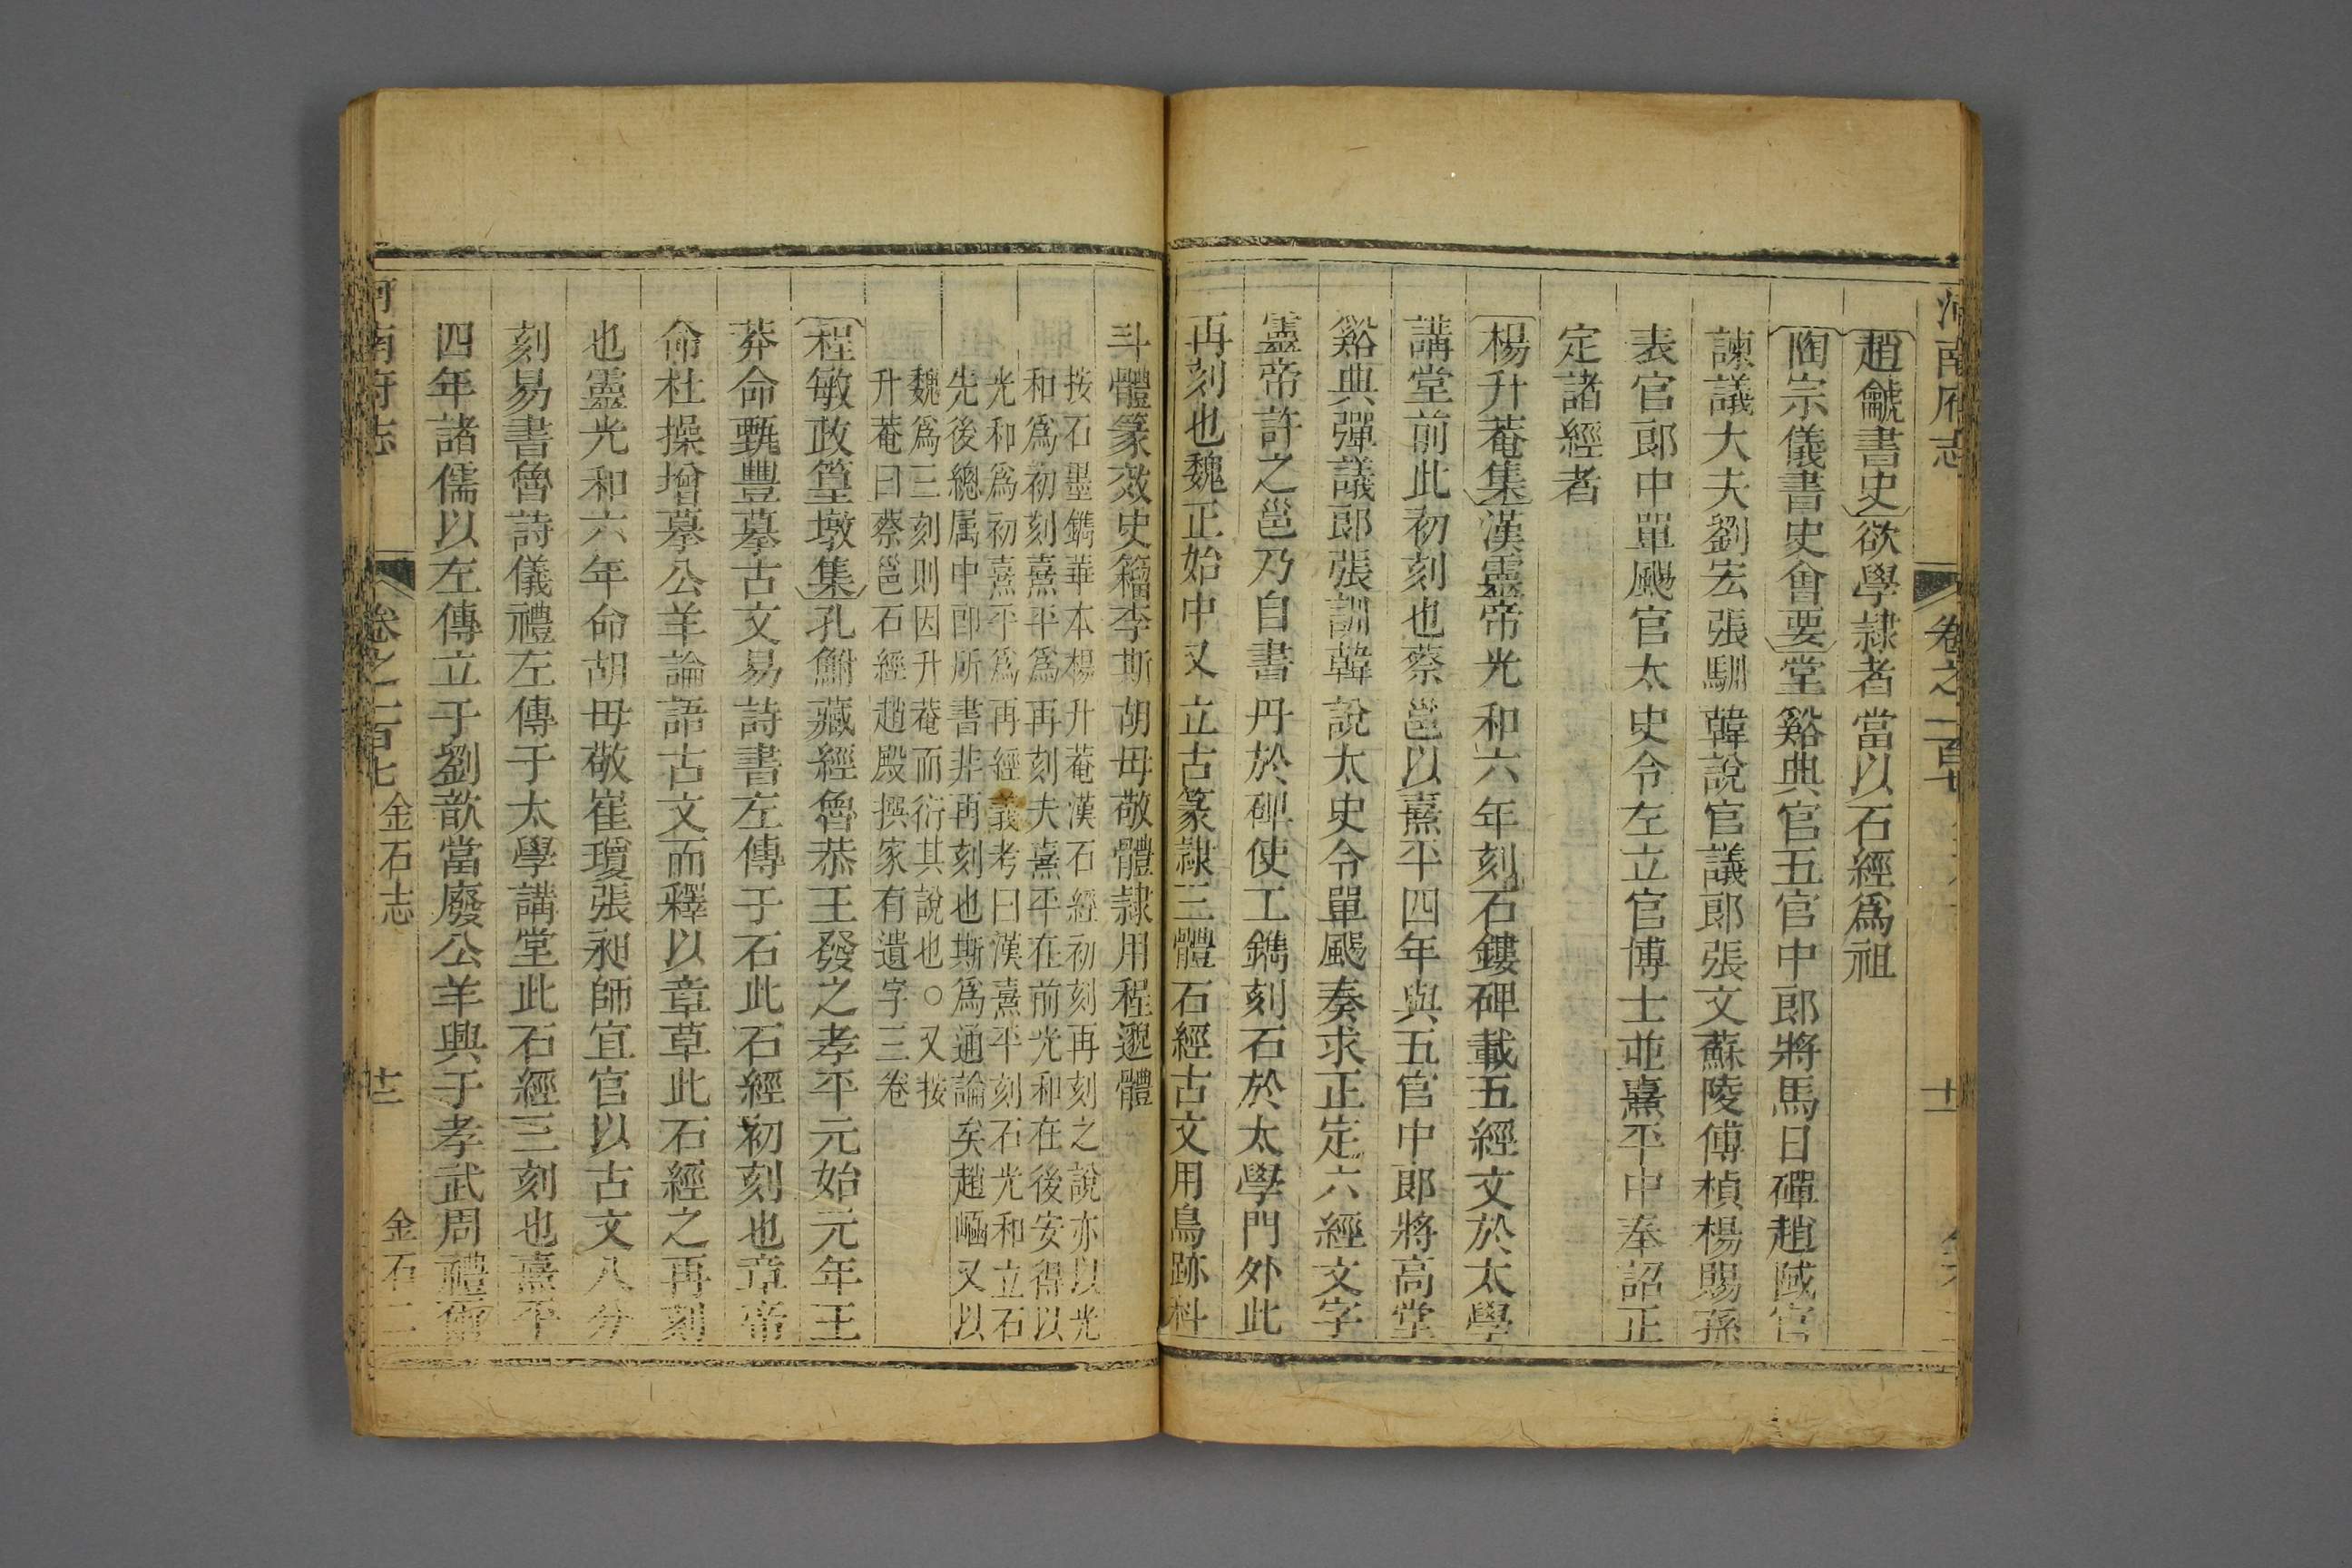 河南府志
卷之一百七
趙𪚲書史欲學隸者當以石經爲祖
陶宗儀書史會要堂谿典官五官中郎將馬日磾趙𢽎官
諫議大夫劉宏張馴韓說官議郎張文蘇陵傅楨楊賜孫
表官郎中單颺官太史令左立官博士並熹平中奉詔正
定諸經者
楊升菴集漢靈帝光和六年刻石鏤碑載五經文於太學
講堂前此初刻也蔡邕以熹平四年與五官中郎將高堂
谿典彈議郎張訓韓說太史令單颺奏求正定六經文字
靈帝許之邕乃自書丹於碑使工鐫刻石於太學門外此
再刻也魏正始中又立古篆隸三體石經古文用鳥跡科
斗體篆效史籀李斯胡毋敬體隸用程邈體
按石墨鐫華本楊升菴漢石經初刻再刻之說亦以光
和爲初刻熹平爲再刻夫熹平在前光和在後安得以
光和爲初熹平爲再經義考曰漢熹平刻石光和立石
先後總属中郎所書非再刻也斯爲通論矣趙崡又以
魏爲三刻則因升菴而衍其說也○又按
升菴曰蔡邕石經趙殿撰家有遺字三卷
程敏政篁墩集孔鮒藏經魯恭王發之孝平元始元年王
莽命甄豐摹古文易詩書左傳于石此石經初刻也章帝
命杜操增摹公羊論語古文而釋以章草此石經之再刻
也靈光和六年命胡毋敬崔瓊張昶師宜官以古文八分
刻易書魯詩儀禮左傳于太學講堂此石經三刻也熹平
四年諸儒以左傳立于劉歆當廢公羊興于孝武周禮
河南府志
卷之一百七
金石志
金石二